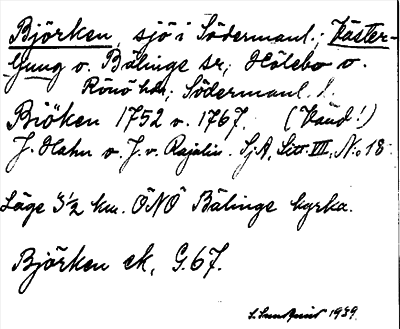 Björken, sjö i Södermanl.; Väster-
ljung o. Bälinge sr; Hölebo o.
Rönö hdr; Södermanl. l.
Biöken 1752 o. 1767. (Vänd!)
J. Hahn o. J. v. Rajalin. SjA, Litt. VII, N:o 18.
Läge 3 1/2 km. ÖNÖ Bälinge kyrka.
Björken ek, G.67.
1939.